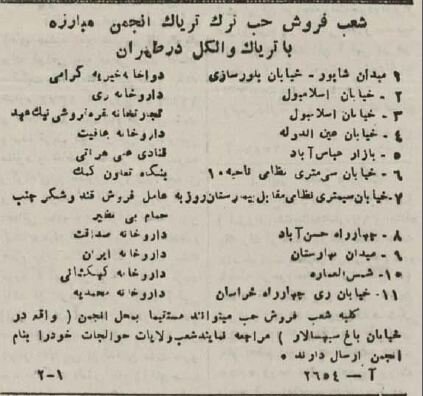 شعب فروش حب ترك ترياك انجمن مبارزه
با ترياك والكل در طهران
۱ ميدان شاپور - خيابان بلورسازی دواخانه خيريه گرامی
۲ - خيابان اسلامبول داروخانه ری
۳ - خيابان اسلامبول تجارتخانه نقره فروشی نيك عهد
۴ - خيابان عين الدوله داروخانه عافيت
۵ - بازار عباس آباد قنادی علی هراتی
۶ - خيابان سی متری نظامی ناحيه ۱۰ بنگاه تعاون كمك
۷ - خيابان سيمتری نظامی مقابل بيمارستان روزبه عامل فروش قند وشكر جنب
حمام بی نظير
۸ - چهارراه حسن آباد داروخانه صداقت
۹ - ميدان بهارستان داروخانه ايران
۱۰ - شمس العماره داروخانه كهكشانی
۱۱ - خيابان ری چهارراه خراسان داروخانه محمديه
كليه شعب فروش حب ميتوانند مستقيما بمحل انجمن ( واقع در
خيابان باغ سپهسالار ) مراجعه نمايند شعب ولايات حوالجات خودرا بنام
انجمن ارسال دارند .
آ — ۲۶۵۴ ۲-۱